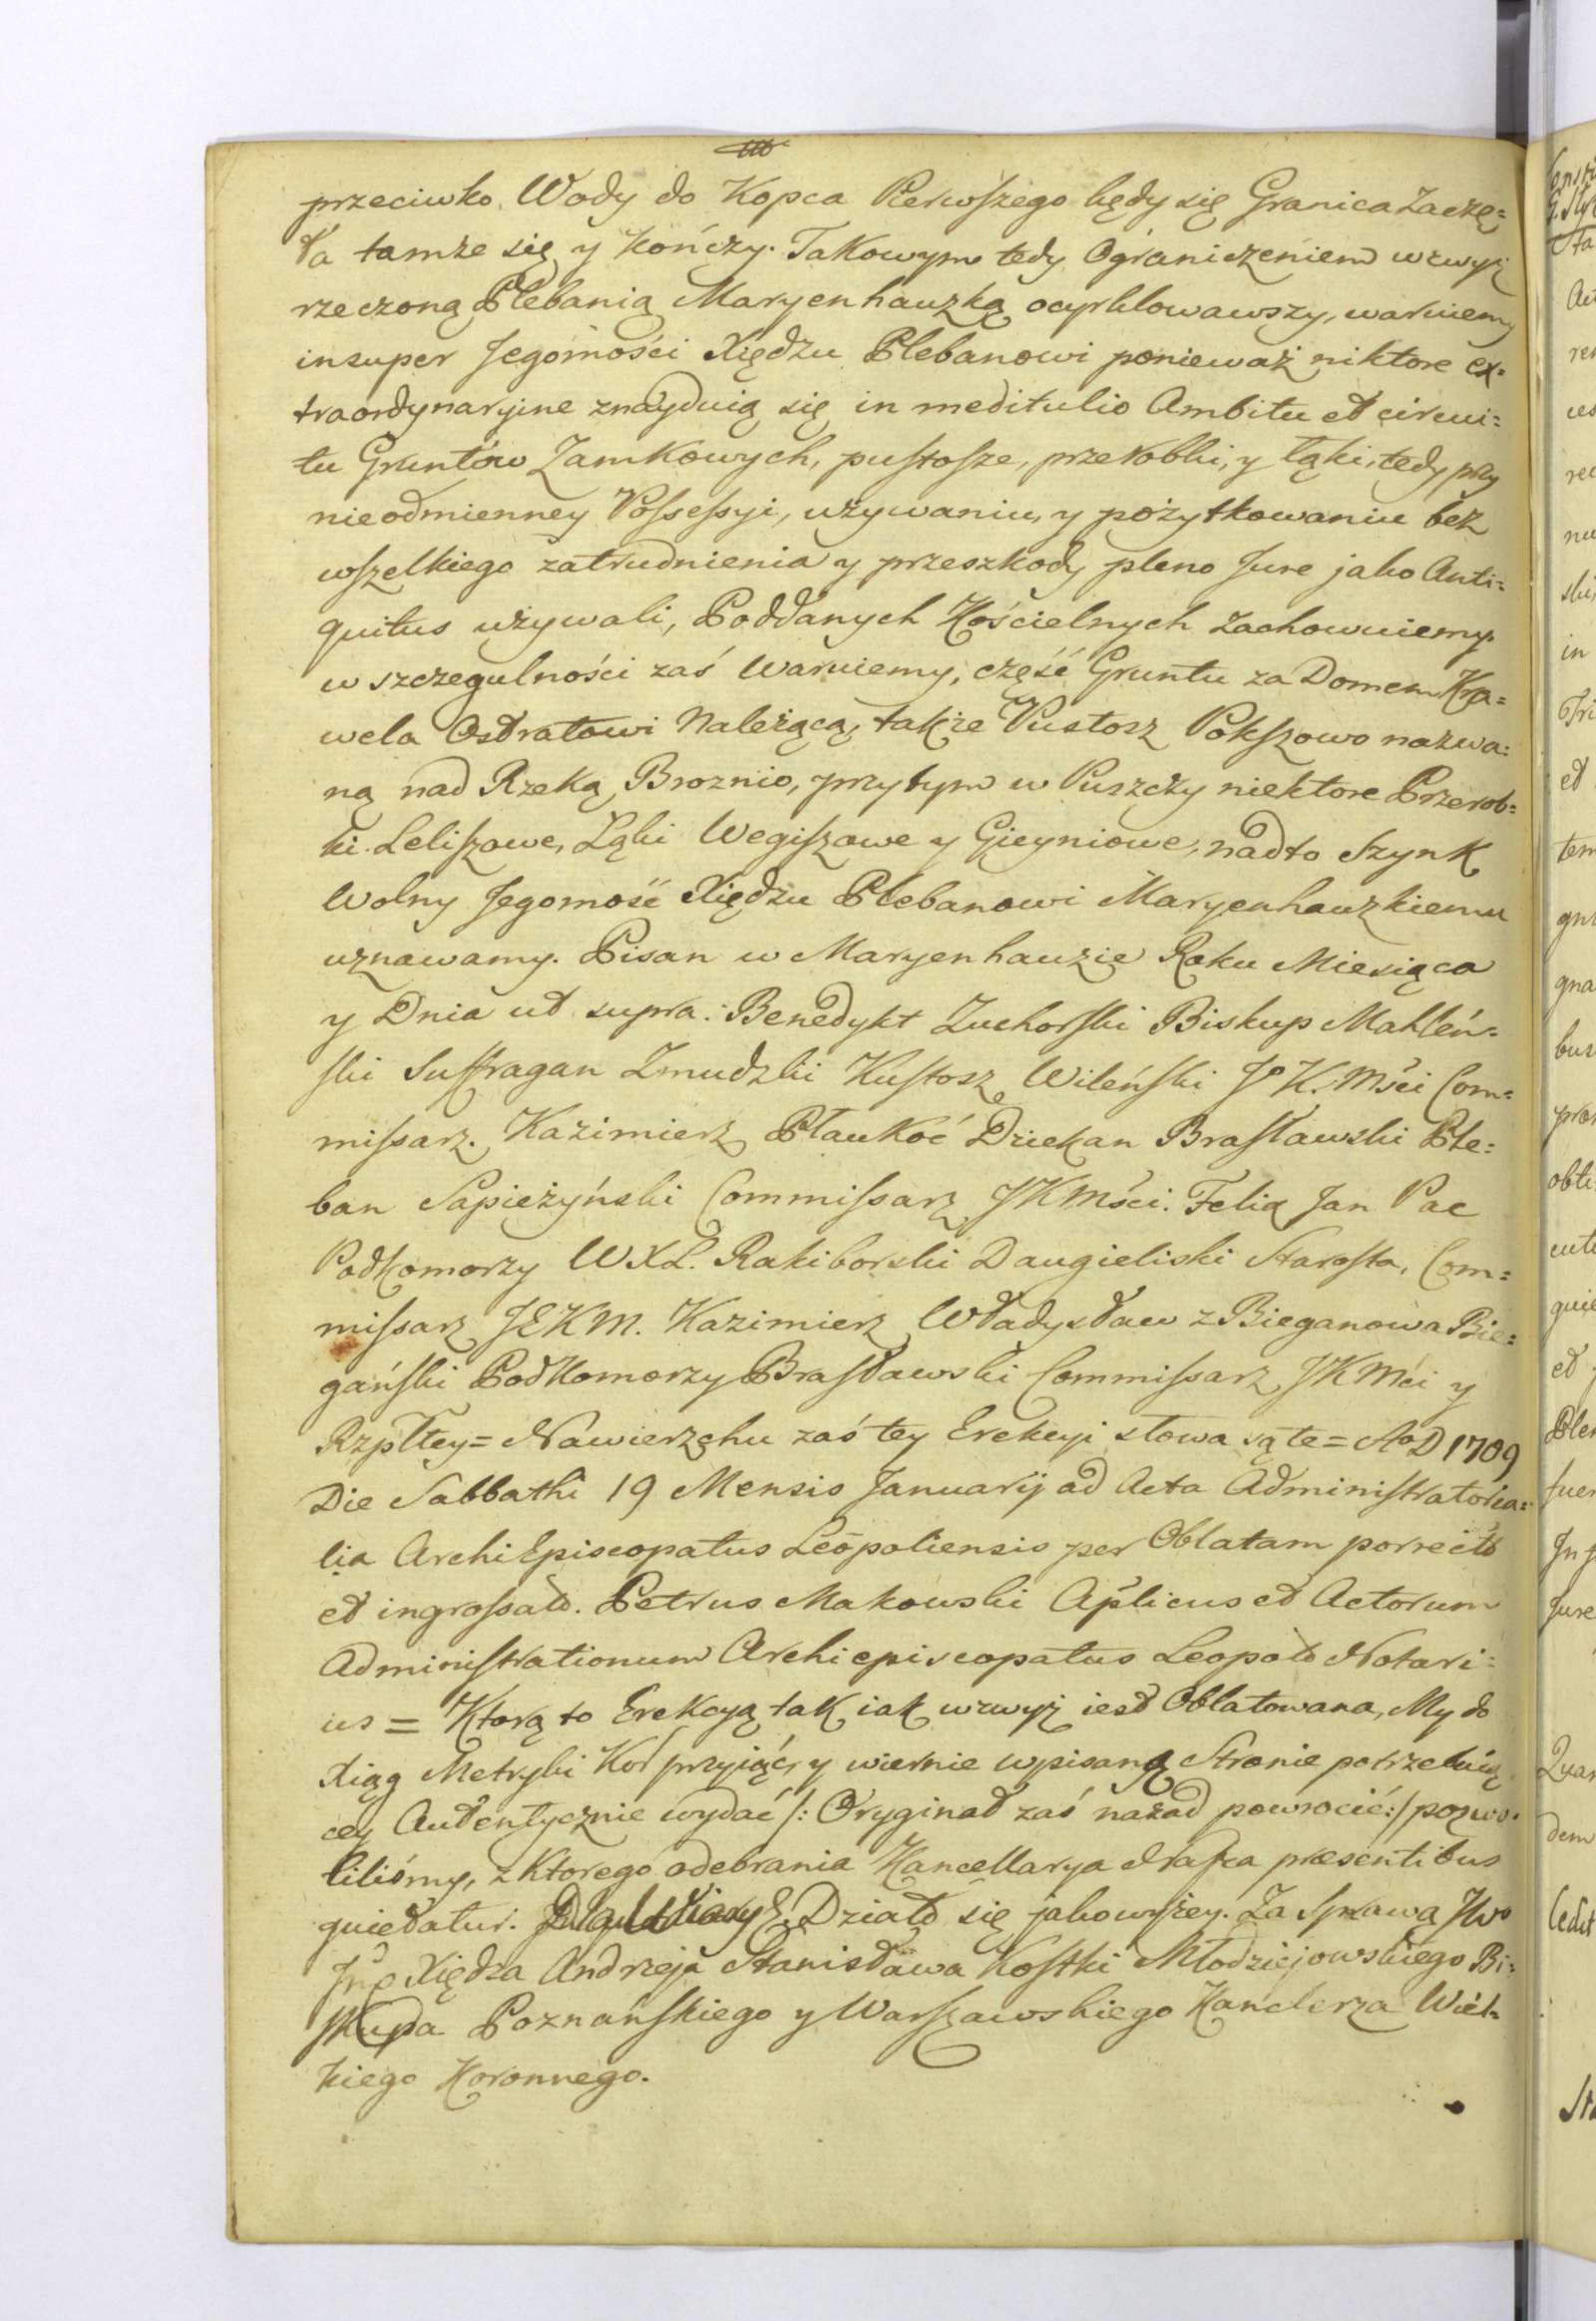 przeciwko Wody do Kopca Pierwszego kędy się Granica Zaczę=
ła tamże się y kończy. Takowym tedy Ograniczeniem wzwyż
rzeczoną Plebanią Maryenhauzką ocyrklowawszy, waruiemy
insuper Jegomości Xiędzu Plebanowi ponieważ niktore ex=
traordynaryine znayduią się in meditulio Ambitu et circui=
tu Gruntów Zamkowych, pustosze, przerobki, y łąki, tedy przy
nieodmienney Possessyi, używaniu, y pożytkowaniu bez
wszelkiego zatrudnienia y przeszkody pleno Jure jako Anti=
quitus używali, Poddanych Kościelnych zachowuiemy.
w szczegulności zaś Waruiemy, część Gruntu za Domem Kra=
wela Ostratowi Należącą, także Pustosz Pokszowo nazwa=
ną nad Rzeką Broznio, przytym w Puszczy niektore Przerob=
ki Leliszowe, Łąki Wegiszowe y Gieyniowe, nadto Szynk
Wolny Jegomość Xiędzu Plebanowi Maryenhauzkiemu
uznawamy. Pisan w Maryenhauzie Roku Miesiąca
y Dnia ut supra: Benedykt Żuchorski Biskup Mahleń=
ski Suffragan Zmudzki Kustosz Wileński Jo K. Mści Com=
missarz. Kazimierz Płaukoć Dziekan Brasławski Ple=
ban Sapieżyński Commissarz JKMści. Felix Jan Pac
Podkomorzy WXL. Rakiborski Daugieliski Starosta, Com=
missarz JEKM. Kazimierz Władysław z Bieganowa Bie=
gański Podkomorzy Brasławski Commissarz JKMći y
Rzpłtey= Nawierzchu zaś tey Erekcyi słowa są te= AoD 1709
Die Sabbathi 19 Mensis Januarij ad Acta Administratoria=
lia ArchiEpiscopatus Leopoliensis per Oblatam porrect
et ingrossat. Petrus Makowski Aplicus et Actorum
Administrationum Archiepiscopatus Leopol Notari=
us = Ktorą to Erekcyą tak iak wzwyż iest Oblatowana, My do
Xiąg Metryki Kor przyiąć, y wiernie wpisaną Stronie potrzebuią
cey Autentycznie wydać /: Oryginał zaś nazad powrocić :/ pozwo=
liliśmy, z Ktorego odebrania Kancellarya Nasza præsentibus
quietatur. Działo się jakowyżey. Za Sprawą JWo
Jmć Xiędza Andrzeja Stanisława Kostki Młodziejowskiego Bi=
skupa Poznańskiego y Warszawskiego Kanclerza Wiel=
kiego Koronnego.